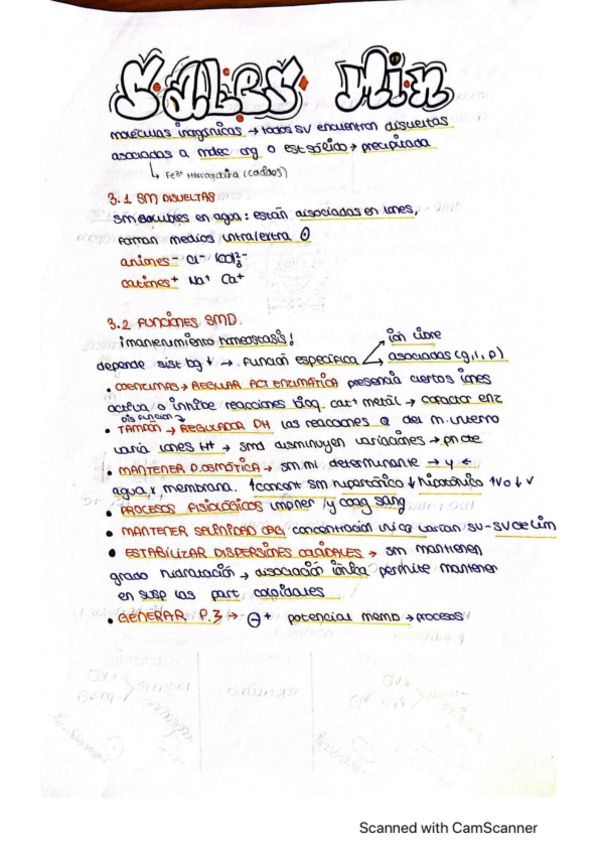 SALES MIN
moléculas inorgánicas → todos SV encuentran disueltas
asociadas a molec org o est sólido → precipitada
↳ Fe³⁺ Hemoglobina
3.1 SM DISUELTAS
SM solubles en agua: están disociadas en iones,
forman medios intra/extra
aniones - Cl⁻
cationes + Na⁺ Ca⁺
3.2 FUNCIONES SMD.
¡mantenimiento homeostasis!
ión libre
depende sist bg ↓ → función específica
asociadas (g, l, p)
• COENZIMAS → REGULAR ACT ENZIMÁTICA presencia ciertos iones
activa o inhibe reacciones bioq. cat⁺ metal → cofactor enz
dis función
• TAMPÓN → REGULADOR PH las reacciones Q del m. interno
varía iones H⁺ → smd disminuyen variaciones → ph cte
• MANTENER P. OSMÓTICA → sm mi determinante →
agua x membrana. ↑ concent SM hipertónico ↓ hipotónico ↑V o ↓ V
• PROCESOS FISIOLÓGICOS /y coag sang
• MANTENER SALINIDAD concentración varían SV - SV de lim
• ESTABILIZAR DISPERSIONES COLOIDALES → SM mantienen
grado hidratación → asociación iónica permite mantener
en susp las part coloidales
• GENERAR P. → - + potencial memb → procesos
Scanned with CamScanner